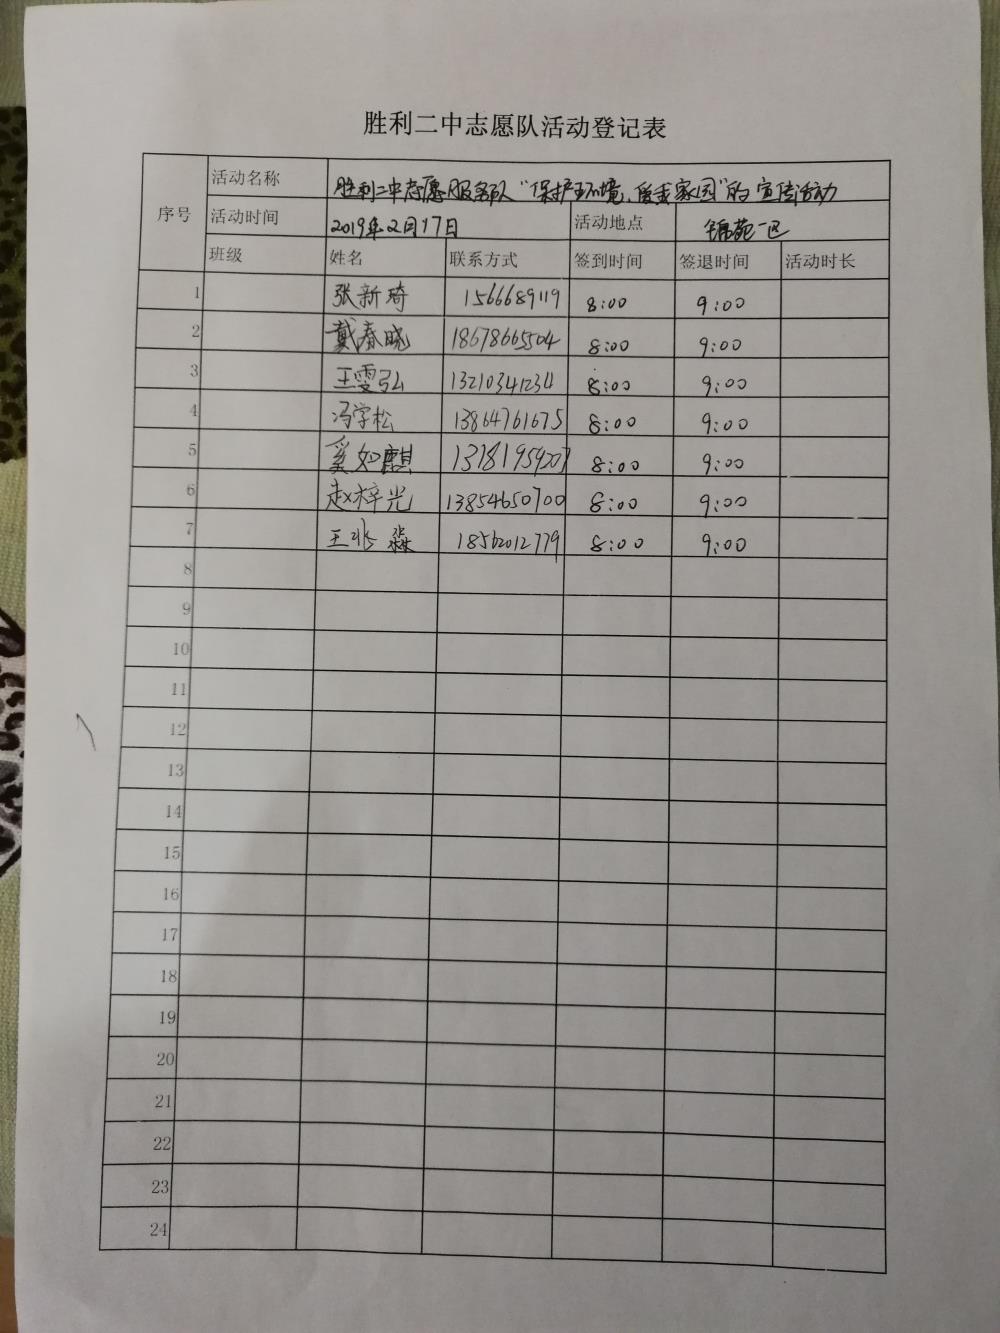 胜利二中志愿队活动登记表
序号 活动名称 胜利二中志愿服务队“保护环境,爱我家园”的宣传活动
活动时间 2019年2月17日 活动地点 锦苑一区
班级 姓名 联系方式 签到时间 签退时间 活动时长
1 张新琦 1566689119 8:00 9:00
2 戴春晓 18678665504 8:00 9:00
3 王雯弘 13210341234 8:00 9:00
4 冯学松 13864761675 8:00 9:00
5 奚如麒 13781959207 8:00 9:00
6 赵梓光 13854650700 8:00 9:00
7 王兆淼 18562012779 8:00 9:00
8
9
10
11
12
13
14
15
16
17
18
19
20
21
22
23
24